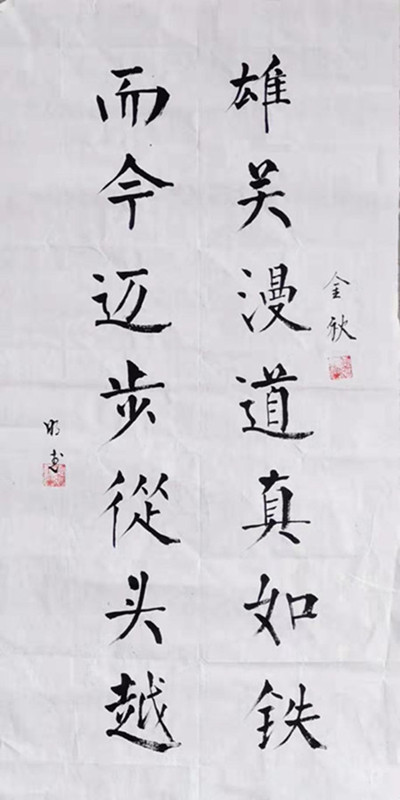 金秋
雄关漫道真如铁
而今迈步從头越